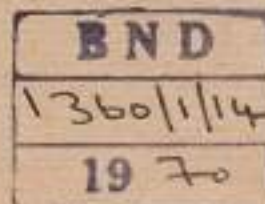 BND
1360/1/14
19 70